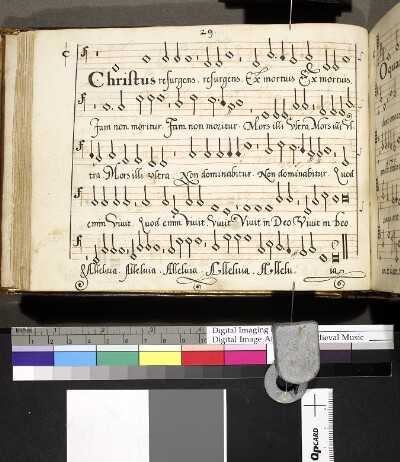 29.
C
Christus resurgens. resurgens. Ex mortuis Ex mortuis.
Jam non moritur. Jam non moritur. Mors illi Vltra Mors illi Vl
tra Mors illi Vltra. Non dominabitur. Non dominabitur. Quod
enim Vivit. Quod enim Vivit. Vivit Vivit in Deo Vivit in Deo
Alleluia. Alleluia. Alleluia. Alleluia. Allelu. ia.
Inches 1 2 3
Digital Imaging
Digital Image Medieval Music
QPCARD